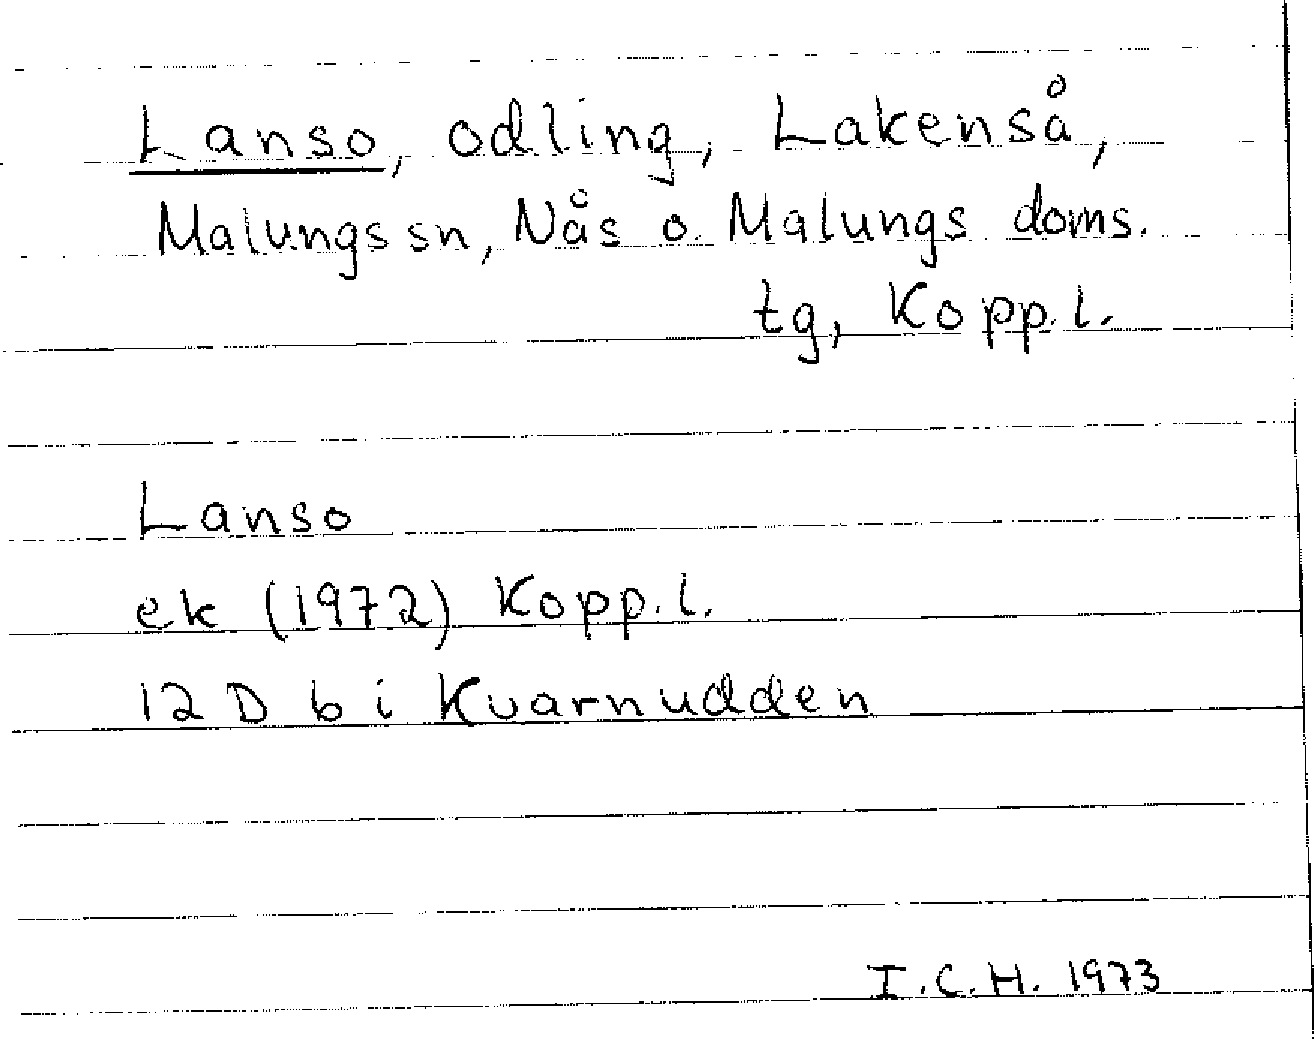 Lanso, odling, Lakenså,
Malungs sn, Nås o. Malungs doms.
tg, Kopp. l.
Lanso
ek (1972) Kopp. l.
12 D b i Kvarnudden
I.C.H. 1973